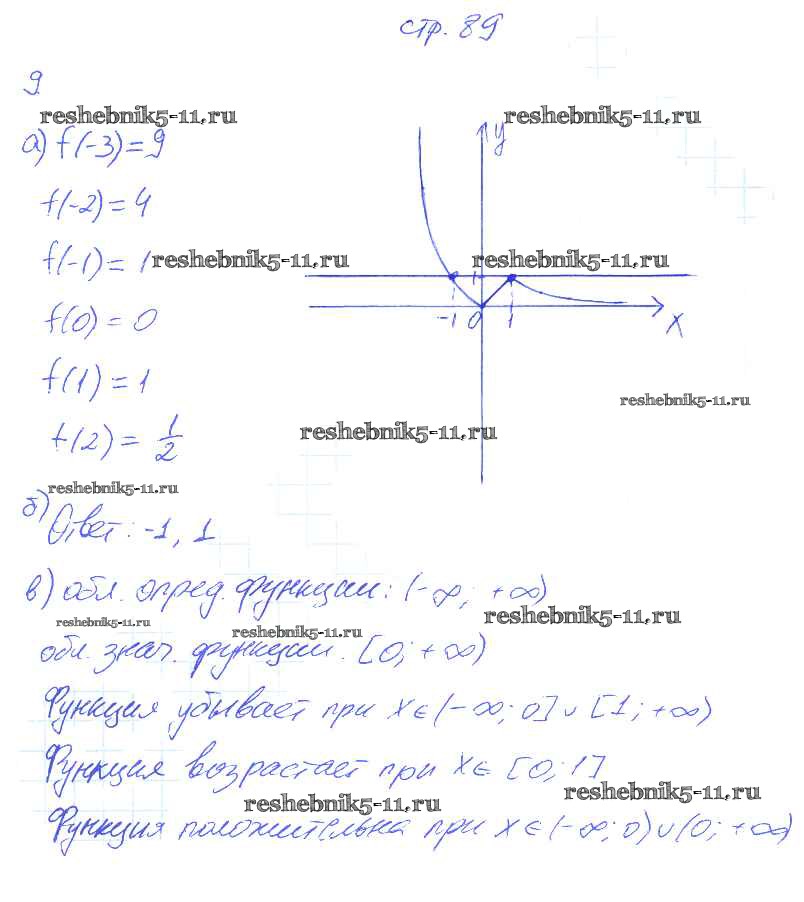 стр. 89
9
reshebnik5-11.ru
reshebnik5-11.ru
а) f(-3)=9
y
f(-2)=4
f(-1)=1
reshebnik5-11.ru
reshebnik5-11.ru
1
f(0)=0
-1 0 1
x
f(1)=1
reshebnik5-11.ru
f(2)=1/2
reshebnik5-11.ru
reshebnik5-11.ru
б) Ответ: -1, 1
в) обл. опред. функции: (-∞; +∞)
reshebnik5-11.ru
reshebnik5-11.ru
reshebnik5-11.ru
обл. знач. функции. [0; +∞)
Функция убывает при x∈(-∞; 0]∪[1; +∞)
Функция возрастает при x∈[0; 1]
reshebnik5-11.ru
reshebnik5-11.ru
Функция положительна при x∈(-∞; 0)∪(0; +∞)